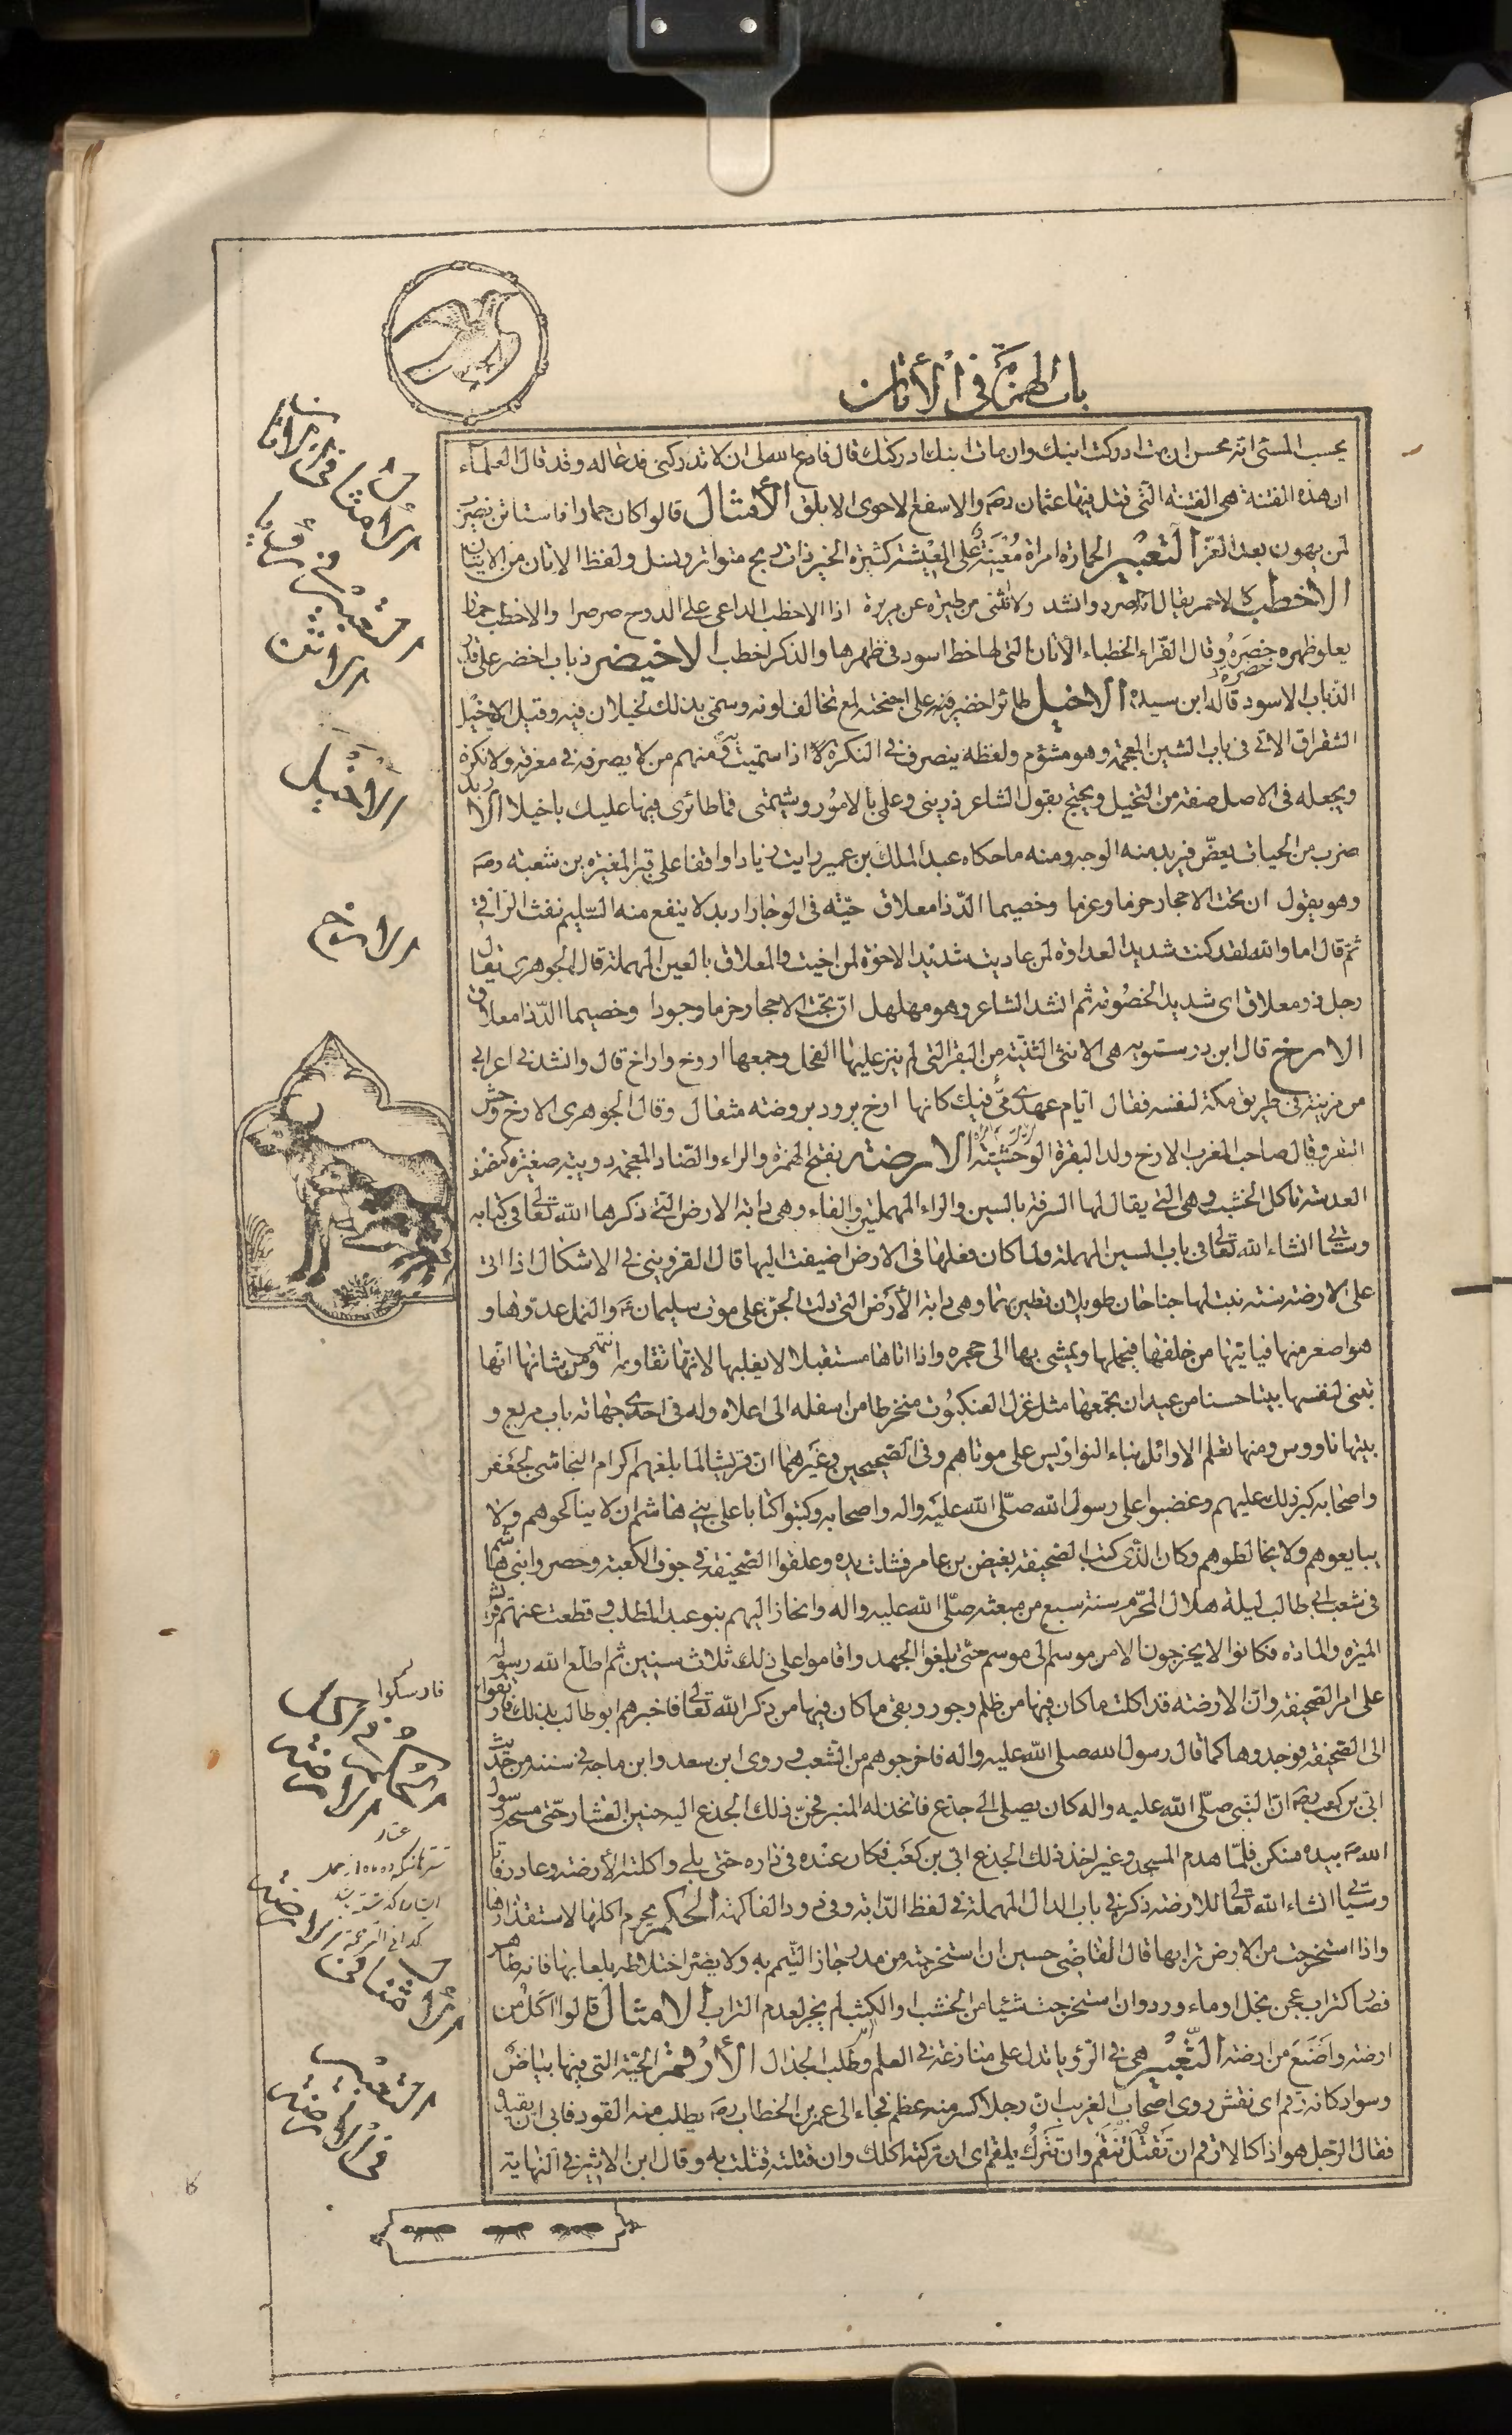 باب الهمزة في الأتان
يحسب المسئ انه محسن ان مت ادركت ابنك وان مات ابنك ادركك قال فادع الله لى ان لا تدركنى فدعا له وقد قال العلماء
ان هذه الفتنة هى الفتنة التى قتل فيها عثمان رضه والاسفع الاحوى الابلق الأمثال قالوا كان حمارا فاستاتن يضرب
لمن يهون بعد العزّ التعبير الحمارة امراة مُعْيَنَة على المعيشة كثيرة الخير ذات ربح متواتر ونسل ولفظ الاتان من الايتان
الاخطب كالاحمر يقال انه الصرد وانشد ولا انثنى من طيرة عن مريرة اذا الاخطب الداعى على الدوح صرصرا والاخطب حمار
يعلو ظهره خضرة وقال الفرّاء الخطباء الأتان التى لها خط اسود فى ظهرها والذكر اخطب الاخيضر ذباب اخضر على قدر
الذباب الاسود قاله ابن سيدة الاخيل طائر اخضر فيه على اجنحته لمع تخالف لونه وسمى بذلك لخيلان فيه وقيل الاخيل
الشقراق الاتى فى باب الشين المعجمة وهو مشؤم ولفظه ينصرف فى النكرة اذا سميت به ومنهم من لا يصرفه فى معرفة ولا نكرة
ويجعله فى الاصل صفة من التخيل ويحتج بقول الشاعر ذرينى وعلمى بالامور وشيمتى فما طائرى فيها عليك باخيلا الاربد
ضرب من الحيات يعضّ فيربد منه الوجه ومنه ما حكاه عبد الملك بن عمير رايت زيادا واقفا على قبر المغيرة بن شعبة رضه
وهو يقول ان تحت الاحجار حزما وعزما وخصيما الدّ ذا معلاق حيّة فى الوجار اربد لا ينفع منه السليم نفث الراقى
ثم قال اما والله لقد كنت شديد العداوة لمن عاديت شديد الاخوة لمن اخيت والمعلاق بالعين المهملة قال الجوهرى يقال
رجل ذو معلاق اى شديد الخصومة ثم انشد الشاعر وهو مهلهل انّ تحت الاحجار حزما وجودا وخصيما الدّ ذا معلاق
الارخ قال ابن درستويه هى الانثى الثنية من البقر التى لم ينز عليها الفحل وجمعها اروخ واراخ قال وانشدنى اعرابى
من مزينة فى طريق مكة لنفسه فقال ايام عهدى مىّ فيك كانها ارخ برود بروضة مثقال وقال الجوهرى الارخ وحش
البقر وقال صاحب المغرب الارخ ولد البقرة الوحشية الارضة بفتح الهمزة والراء والضاد المعجمة دويبة صغيرة كنصف
العدسة تاكل الخشب وهى التى يقال لها السرفة بالسين والراء المهملتين والفاء وهى دابة الارض التى ذكرها الله تعالى فى كتابه
وستاتى انشاء الله تعالى فى باب السين المهملة ولما كان فعلها فى الارض اضيفت اليها قال القزوينى فى الاشكال اذا اتى
على الارضة سنة نبت لها جناحان طويلان تطير بهما وهى دابة الأرض التى دلت الجن على موت سليمان ع والنمل عدوها و
هو اصغر منها فياتيها من خلفها فيحملها ويمشى بها الى حجره واذا اتاها مستقبلا لا يغلبها لانها تقاومه انتهى ومن شانها انها
تبنى لنفسها بيتا حسنا من عيدان تجمعها مثل غزل العنكبوت منخرطا من اسفله الى اعلاه وله فى احدى جهاته باب مربع و
بيتها ناووس ومنها تعلم الاوائل بناء النواويس على موتاهم وفى الصحيحين وغيرهما ان قريشا لما بلغهم اكرام النجاشى لجعفر
واصحابه كبر ذلك عليهم وغضبوا على رسول الله صلّى الله عليه واله واصحابه وكتبوا كتابا على بنى هاشم ان لا يناكحوهم ولا
يبايعوهم ولا يخالطوهم وكان الذى كتب الصحيفة بغيض بن عامر فشلت يده وعلقوا الصحيفة فى جوف الكعبة وحصروا بنى هاشم
فى شعب ابى طالب ليلة هلال المحرّم سنة سبع من مبعثه صلّى الله عليه واله وانحاز اليهم بنو عبد المطلب وقطعت عنهم قريش
الميرة والمادة فكانوا لا يخرجون الا من موسم الى موسم حتى بلغوا الجهد واقاموا على ذلك ثلاث سنين ثم اطلع الله رسوله
على امر الصحيفة وانّ الارضة قد اكلت ما كان فيها من ظلم وجور وبقى ما كان فيها من ذكر الله تعالى فاخبرهم ابو طالب بذلك
الى الصحيفة فوجدوها كما قال رسول الله صلى الله عليه واله فاخرجوهم من الشعب وروى ابن سعد وابن ماجة فى سننه من حديث
ابى بن كعب رضه انّ النبى صلّى الله عليه واله كان يصلى الى جذع فاتخذ له المنبر فحنّ ذلك الجذع اليه حنين العشار حتى مسحه رسول
الله ص بيده فسكن فلمّا هدم المسجد وغير اخذ ذلك الجذع ابى بن كعب فكان عنده فى داره حتى بلى واكلته الأرضة وعاد رفاتا
وسيأتى انشاء الله تعالى للارضة ذكر فى باب الدال المهملة فى لفظ الدّابة وفى دود الفاكهة الحكم يحرم اكلها لاستقذارها
واذا استخرجت من الارض ترابها قال القاضى حسين ان استخرجته من مدر جاز التيمم به ولا يضر اختلاطه بلعابها فانه طاهر
فصار كتراب عجن بخل او ماء ورد وان استخرجت شيئا من الخشب او الكتب لم يجز لعدم التراب الامثال قالوا اكل من
ارضة واصنع من ارضة التعبير هى فى الرؤيا تدل على منازعة فى العلم وطلب الجدال الأرقم الحيّة التى فيها بياض
وسواد كانه رقم اى نقش روى اصحاب الغريب ان رجلا كسر منه عظم فجاء الى عمر بن الخطاب رضه يطلب منه القود فابى ان يقيد
فقال الرجل هو اذا كالارقم ان تَقتُل ينقم وان تترك يلقم اى ان تركته اكلك وان قتلته قتلت به وقال ابن الاثير فى النهاية
الامثال فى الاتان
التعبير فى
الاتن
الاخيل
الارخ
الحكم فى
الارضة
الامثال فى الارضة
التعبير
فى الارضة